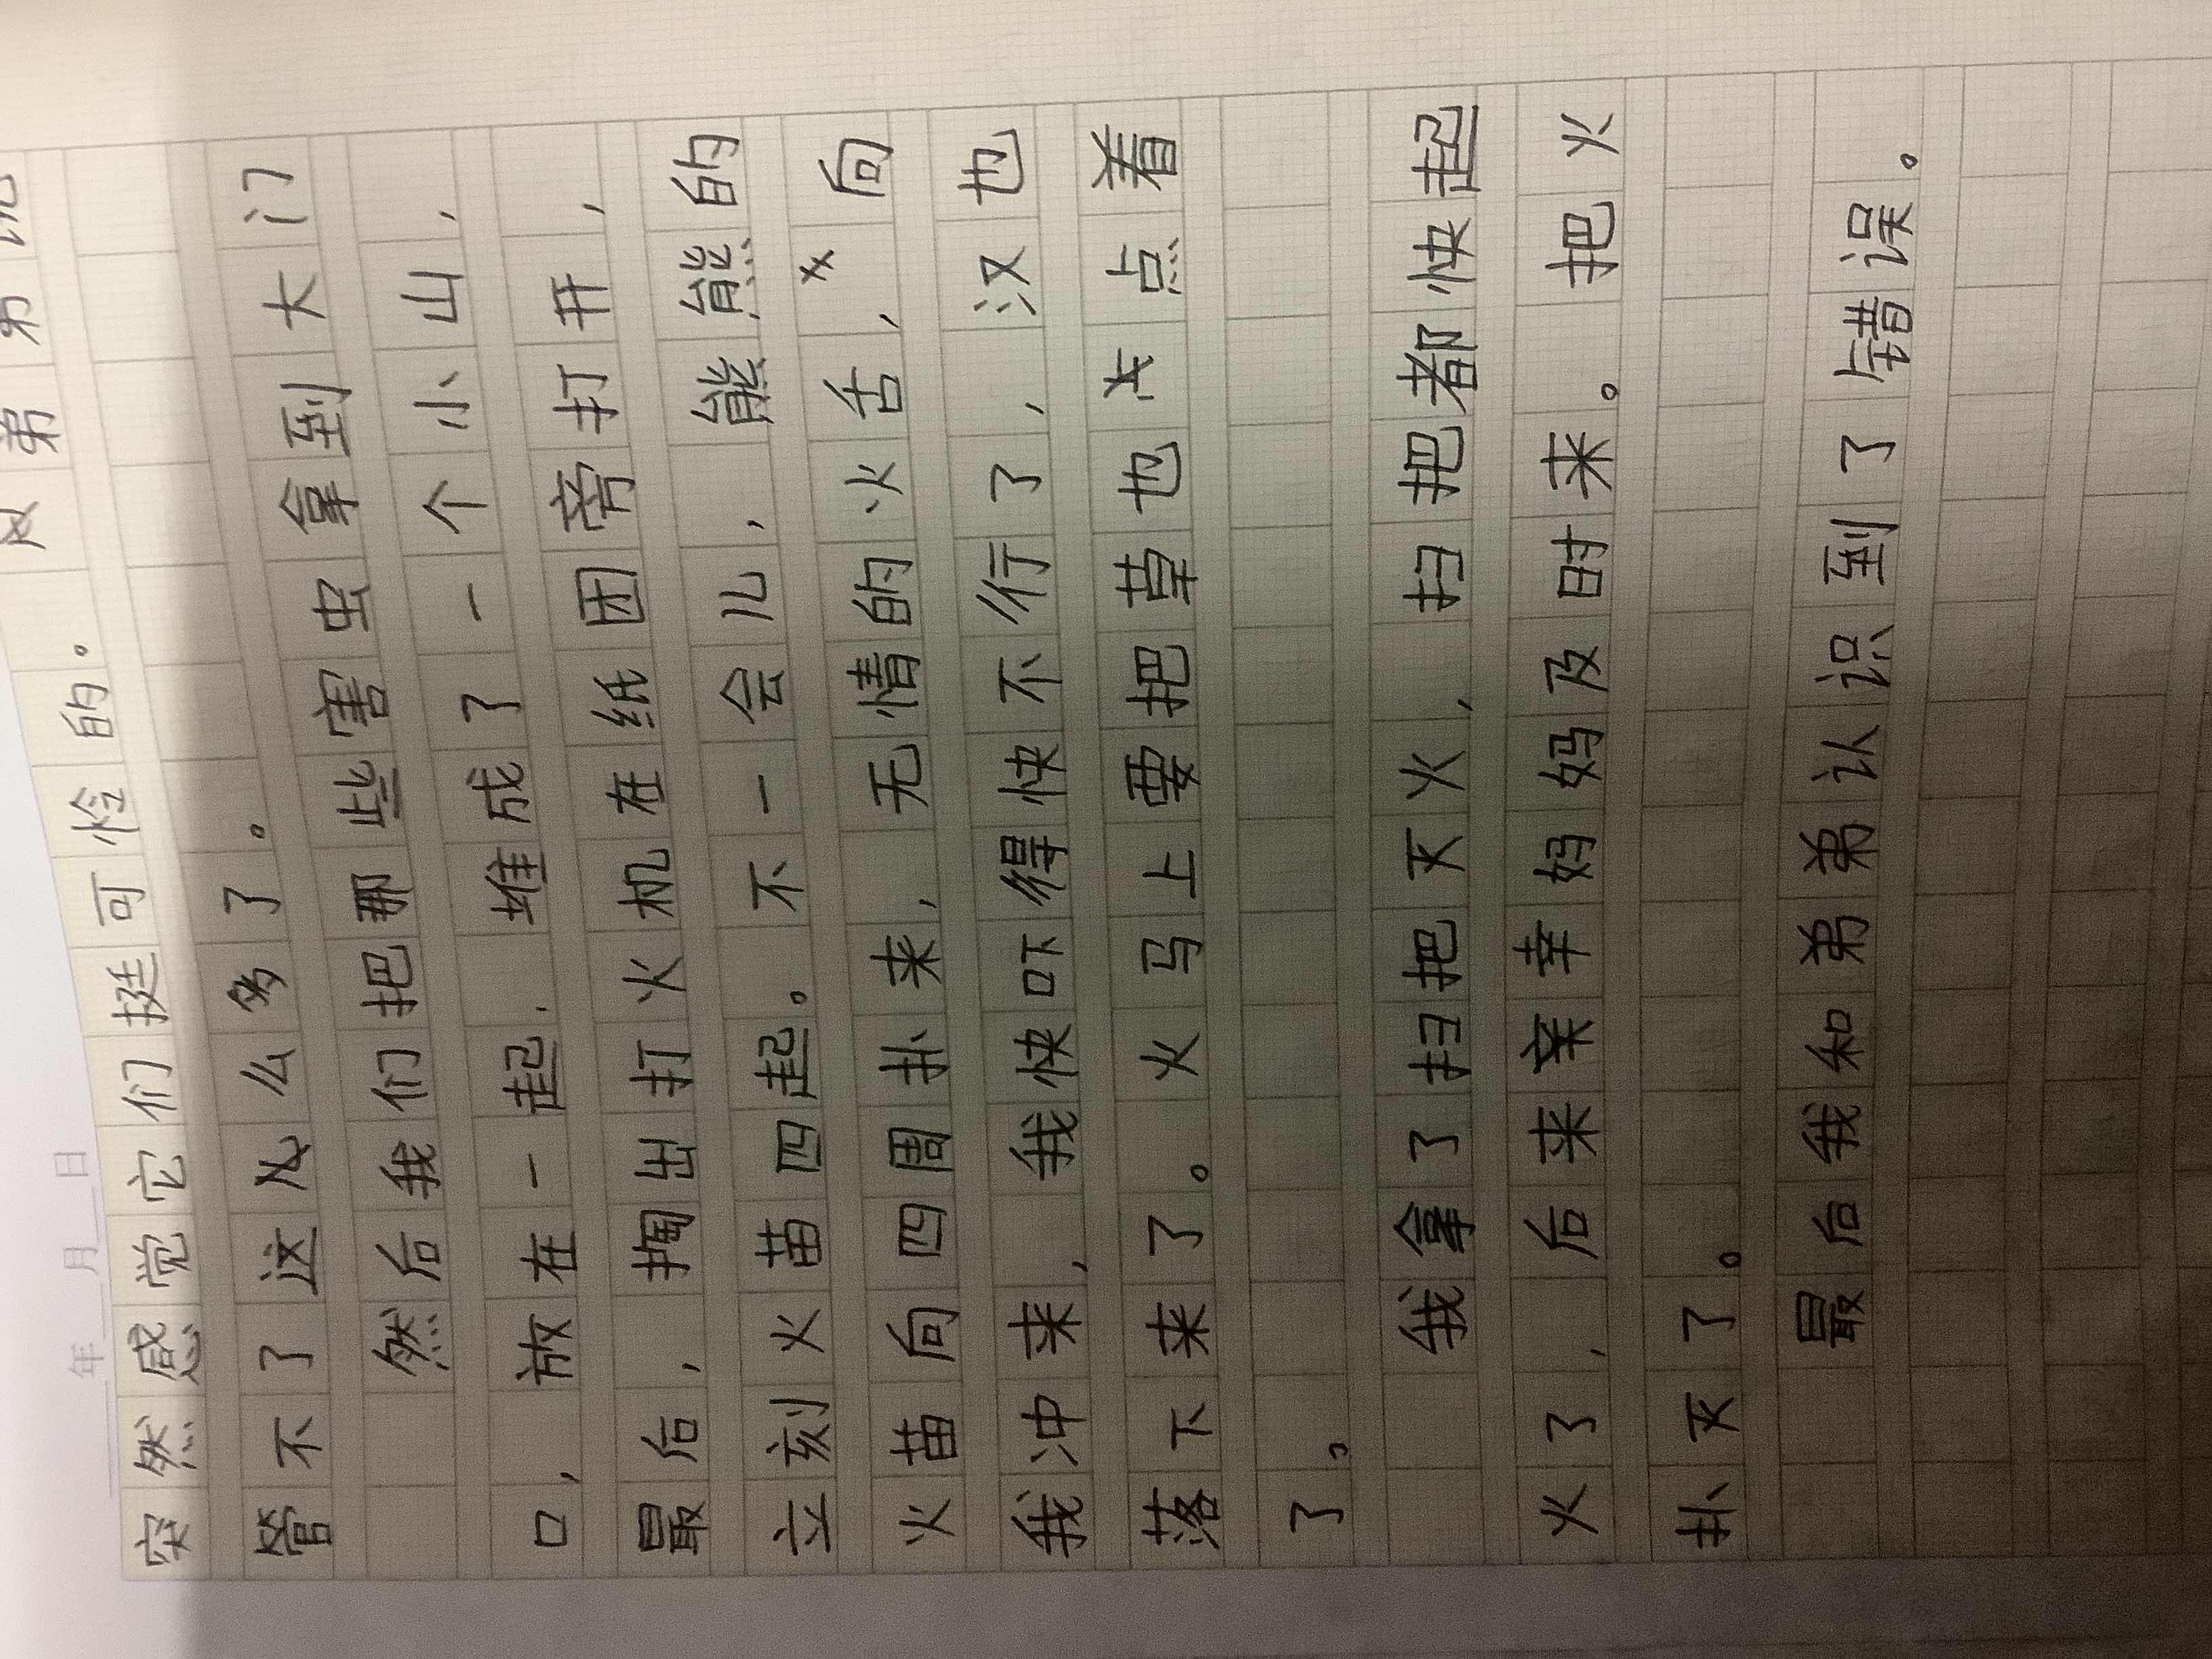 年 月 日
弟弟说
突然感觉它们挺可怜的。
管不了这么多了。
然后我们把那些害虫拿到大门
口,放在一起.堆成了一个小山,
最后,掏出打火机在纸团旁打开,
立刻火苗四起。不一会儿,熊熊的
火苗向四周扑来,无情的火舌,向
我冲来,我快吓得快不行了,汉也
落下来了。火马上要把草也点着
了。
我拿了扫把灭火,扫把都快起
火了,后来亲幸妈妈及时来。把火
扑灭了。
最后我和弟弟认识到了错误。